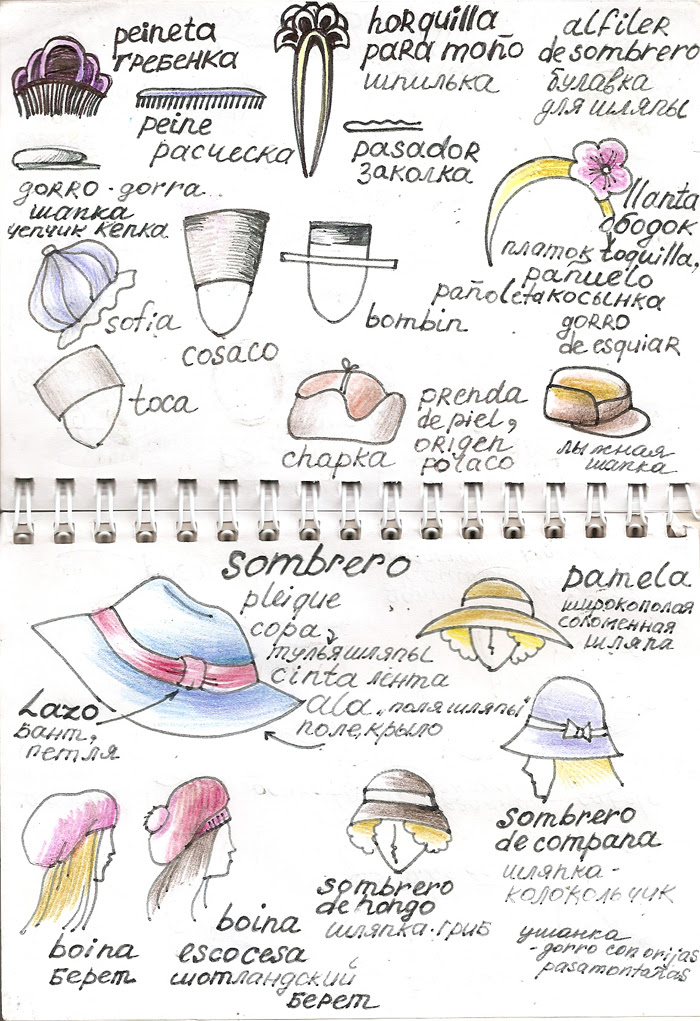 peineta
гребенка
horquilla
para moño
шпилька
alfiler
de sombrero
булавка
для шляпы
peine
расческа
pasador
заколка
gorro-gorra
шапка
чепчик кепка
llanta
ободок
платок toquilla,
pañuelo
pañoleta косынка
sofia
cosaco
bombin
gorro
de esquiar
toca
chapka
prenda
de piel,
origen
polaco
лыжная
шапка
sombrero
pleique
copa,
тулья шляпы
cinta лента
ala „поля шляпы"
поле, крыло
Lazo
бант,
петля
pamela
широкополая
соломенная
шляпа
sombrero
de compana
шляпка-
колокольчик
sombrero
de hongo
шляпка-гриб
boina
берет
boina
escocesa
шотландский
берет
ушанка
-gorro con orijas
pasamontañas